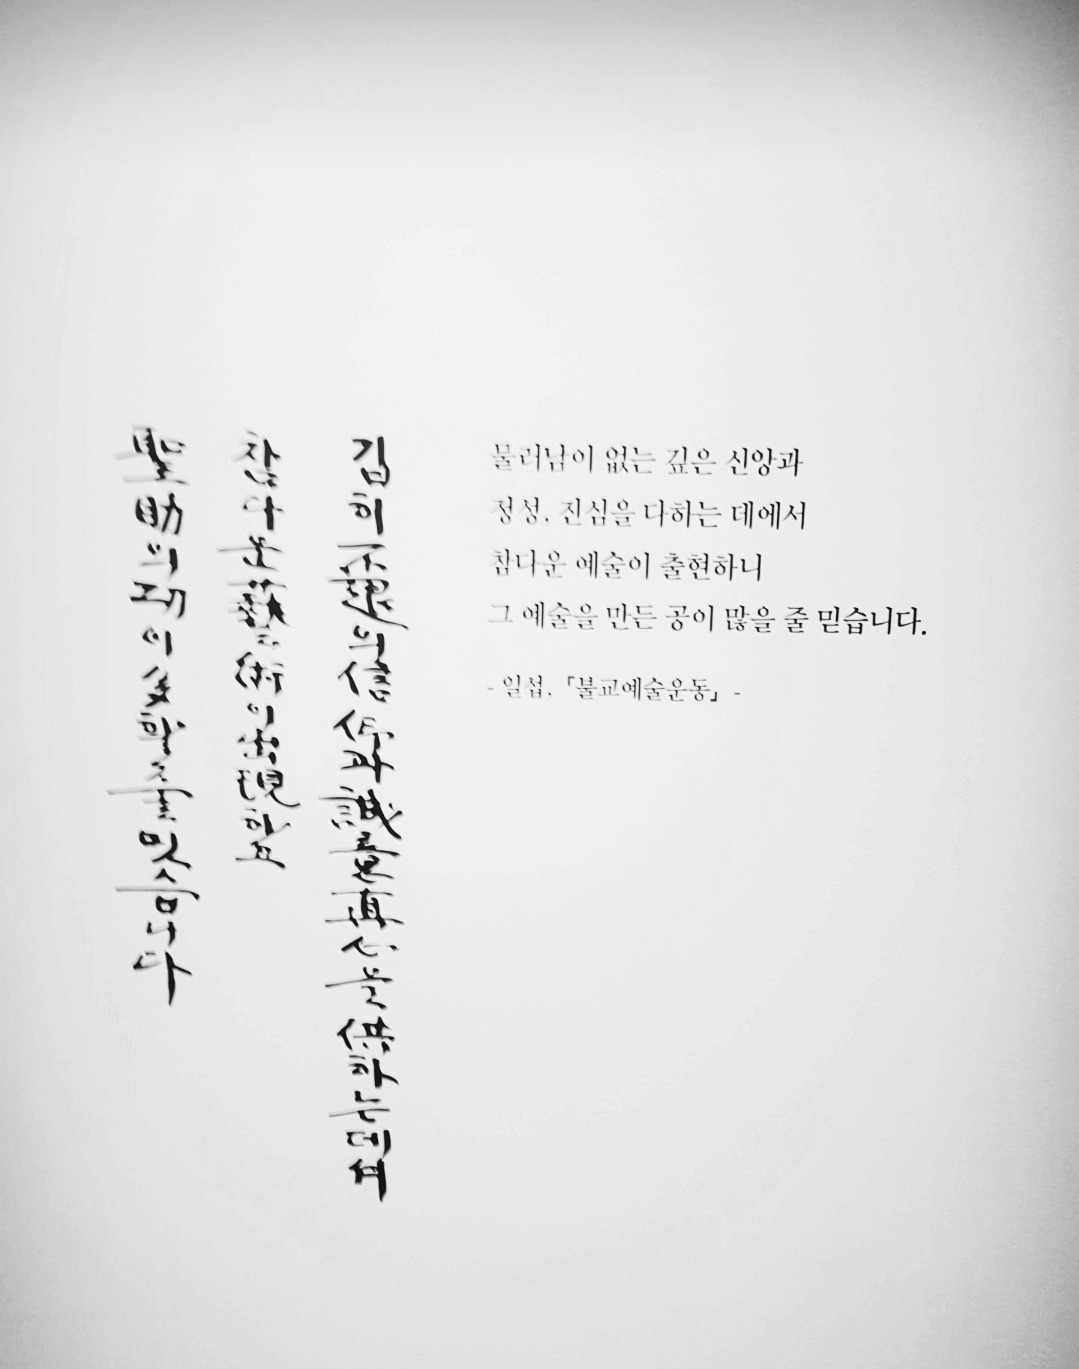 김히不退의信仰과誠意眞心을供하는데셔
참다운藝術이出現하고
聖助의功이多할줄밋슴니다
물러남이 없는 깊은 신앙과
정성, 진심을 다하는 데에서
참다운 예술이 출현하니
그 예술을 만든 공이 많을 줄 믿습니다.
- 일섭, 「불교예술운동」 -